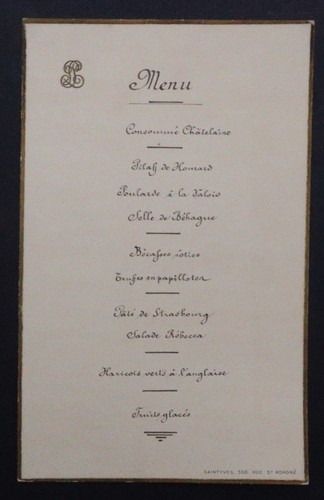 Menu
Consommé Châtelaine
Pilaff de Homard
Poularde à la Valois
Selle de Béhague
Bécasses roties
Truffes en papillotes
Pâté de Strasbourg
Salade Rébecca
Haricots verts à l'anglaise
Fruits glacés
SAINTYVES, 350, RUE ST HONORÉ